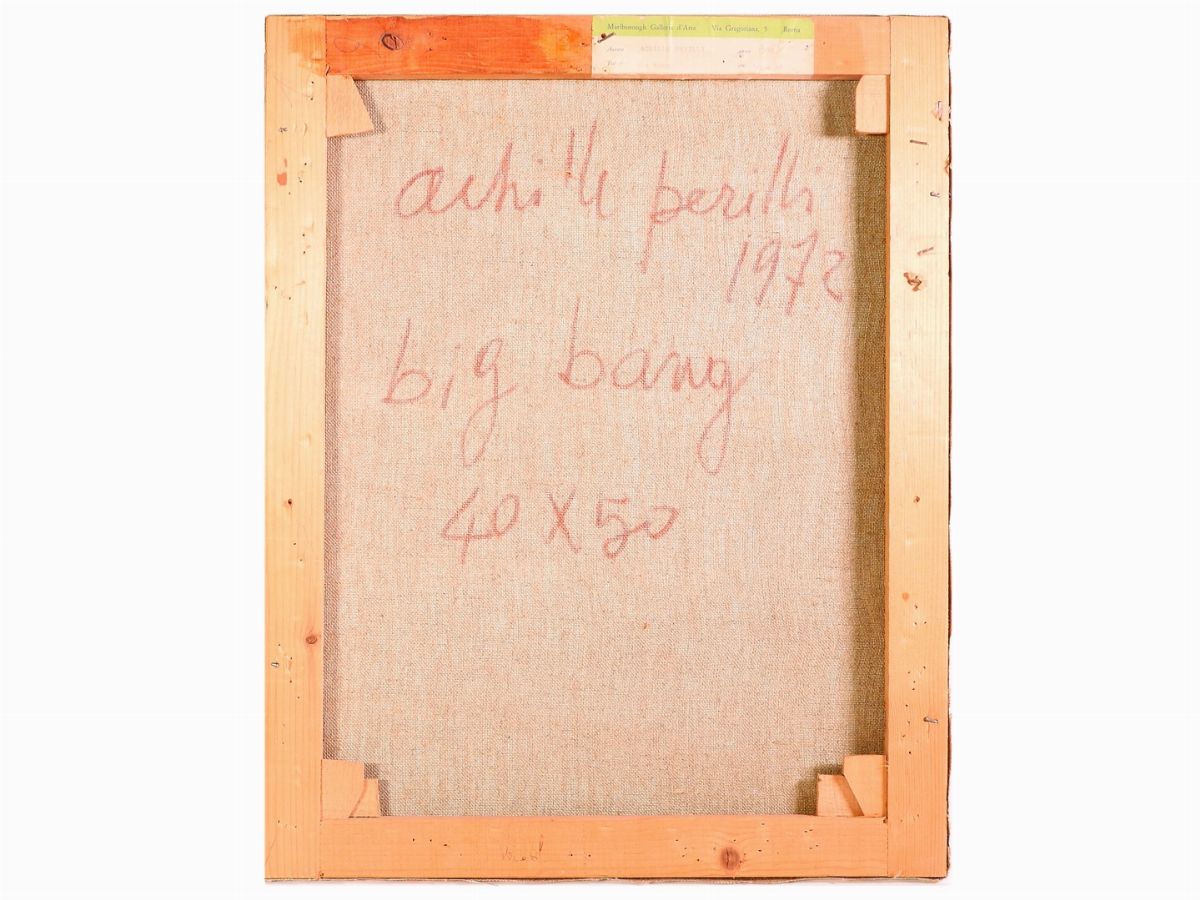 Marlborough Galleria d'Arte Via Gregoriana, 5 Roma
Autore ACHILLE PERILLI
achille perilli
1972
big bang
40 X 50